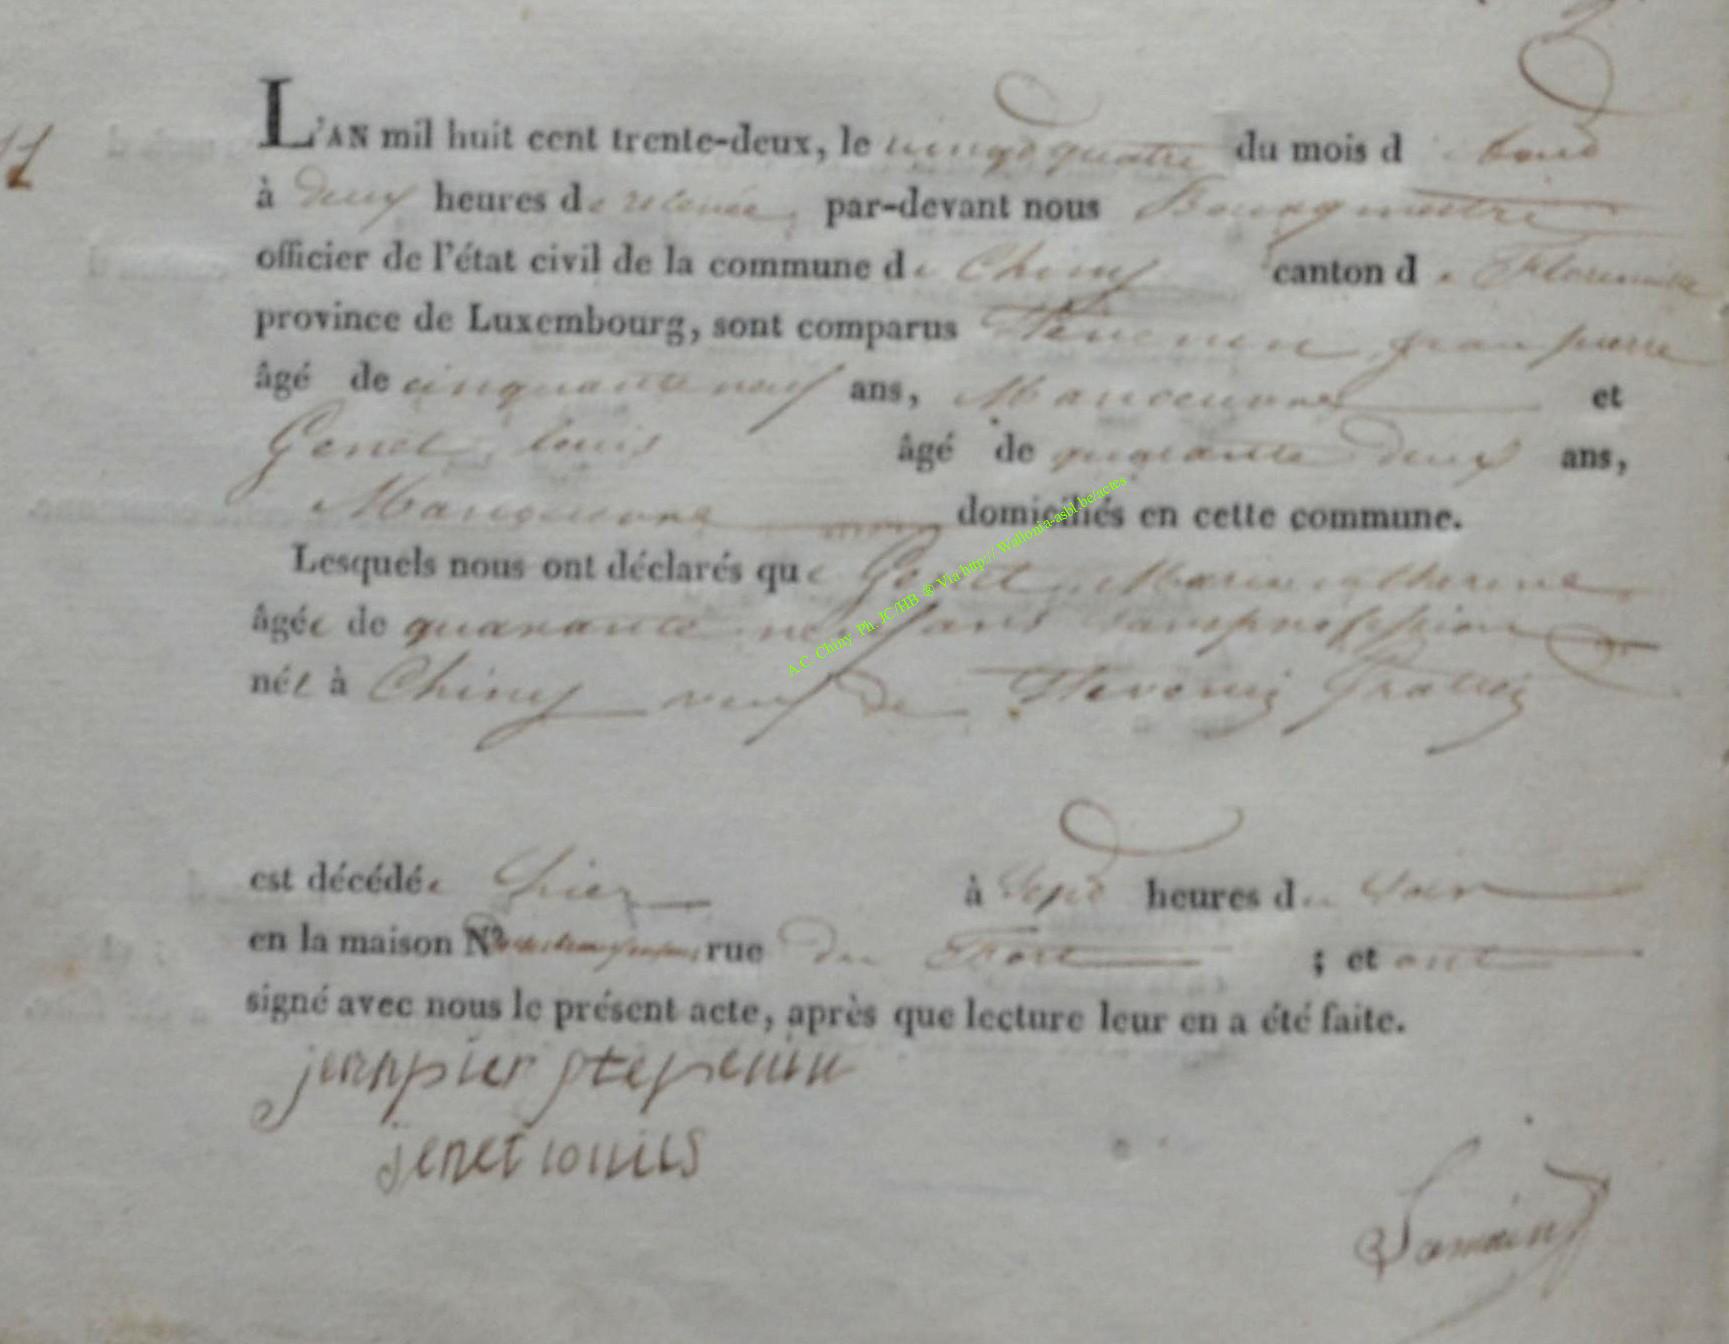 11
L'AN mil huit cent trente-deux, le vingt quatre du mois d'aout
à deux heures de relevée, par-devant nous Bourgmestre
officier de l'état civil de la commune de Chiny canton de Florenville
province de Luxembourg, sont comparus jean pierre
âgé de cinquante neuf ans, Manoeuvre et
Genet, louis âgé de quarante deux ans,
Manoeuvre domiciliés en cette commune.
Lesquels nous ont déclarés que Genet, Marie catherine
âgée de quarante neuf ans sans profession
née à Chiny veuf de
est décédée hier à sept heures du soir
en la maison N° rue du Fort ; et ont
signé avec nous le présent acte, après que lecture leur en a été faite.
jennpier stepenin
jenet louis
Lamain
A.C. Chiny Ph. JC/HB @ Via http:// Wallonia-asbl.be/actes